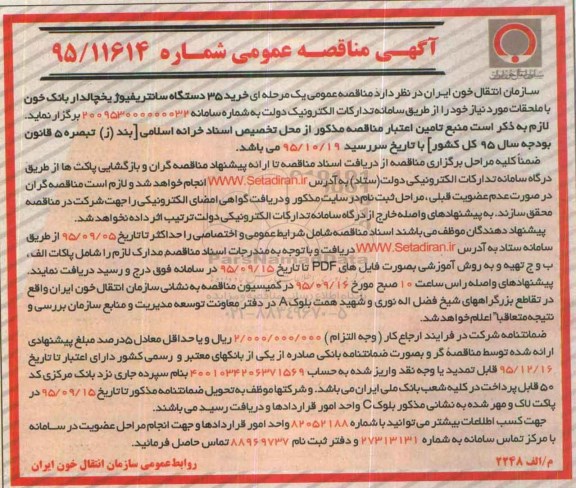 آگهی مناقصه عمومی شماره ۹۵/۱۱۶۱۴
سازمان انتقال خون ایران در نظر دارد مناقصه عمومی یک مرحله ای خرید ۳۵ دستگاه سانتریفیوژ یخچالدار بانک خون
با ملحقات مورد نیاز خود را از طریق سامانه تدارکات الکترونیک دولت به شماره سامانه ۲۰۰۹۵۳۰۰۰۰۰۰۰۳۲ برگزار نماید.
لازم به ذکر است منبع تامین اعتبار مناقصه مذکور از محل تخصیص اسناد خزانه اسلامی [بند (ز) تبصره ۵ قانون
بودجه سال ۹۵ کل کشور] با تاریخ سررسید ۹۵/۱۰/۱۹ می باشد.
ضمناً کلیه مراحل برگزاری مناقصه از دریافت اسناد مناقصه تا ارائه پیشنهاد مناقصه گران و بازگشایی پاکت ها از طریق
درگاه سامانه تدارکات الکترونیکی دولت (ستاد) به آدرس WWW.Setadiran.ir انجام خواهد شد و لازم است مناقصه گران
در صورت عدم عضویت قبلی، مراحل ثبت نام در سایت مذکور و دریافت گواهی امضای الکترونیکی را جهت شرکت در مناقصه
محقق سازند. به پیشنهادهای واصله خارج از درگاه سامانه تدارکات الکترونیکی دولت ترتیب اثر داده نخواهد شد.
پیشنهاد دهندگان موظف می باشند اسناد مناقصه شامل شرایط عمومی و اختصاصی را حداکثر تا تاریخ ۹۵/۰۹/۰۵ از طریق
سامانه ستاد به آدرس WWW.Setadiran.ir دریافت و با توجه به مندرجات اسناد مناقصه مدارک لازم را شامل پاکات الف ،
ب و ج تهیه و به روش آموزشی بصورت فایل های PDF تا تاریخ ۹۵/۰۹/۱۵ در سامانه فوق درج و رسید دریافت نمایند.
پیشنهادهای واصله راس ساعت ۱۰ صبح مورخ ۹۵/۰۹/۱۶ در کمیسیون مناقصه به نشانی سازمان انتقال خون ایران واقع
در تقاطع بزرگراههای شیخ فضل اله نوری و شهید همت بلوک A در دفتر معاونت توسعه مدیریت و منابع سازمان بررسی و
نتیجه متعاقباً اعلام خواهد شد.
ضمانتنامه شرکت در فرایند ارجاع کار (وجه التزام) ۲/۰۰۰/۰۰۰/۰۰۰ ریال و یا حداقل معادل ۵ درصد مبلغ پیشنهادی
ارائه شده توسط مناقصه گر و بصورت ضمانتنامه بانکی صادره از یکی از بانکهای معتبر و رسمی کشور دارای اعتبار تا تاریخ
۹۵/۱۲/۱۶ قابل تمدید یا وجه نقد واریز شده به حساب ۴۰۰۱۰۳۴۲۰۶۳۷۱۵۶۹ بنام سپرده جاری نزد بانک مرکزی کد
۵۰ قابل پرداخت در کلیه شعب بانک ملی ایران می باشد. و شرکتها موظف به تحویل ضمانتنامه مذکور تا تاریخ ۹۵/۰۹/۱۵ در
پاکت لاک و مهر شده به نشانی مذکور بلوک C واحد امور قراردادها و دریافت رسید می باشند.
جهت کسب اطلاعات بیشتر می توانید با شماره ۸۲۰۵۲۱۸۸ واحد امور قراردادها و جهت انجام مراحل عضویت در سامانه
با مرکز تماس سامانه به شماره ۲۷۳۱۳۱۳۱ و دفتر ثبت نام ۸۸۹۶۹۷۳۷ تماس حاصل فرمائید.
م/الف ۲۲۴۸
روابط عمومی سازمان انتقال خون ایران